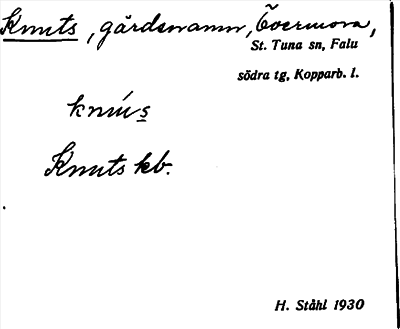 Knuts, gårdsnamn, Övermora,
St. Tuna sn, Falu
södra tg, Kopparb. l.
knús
Knuts kb.
H. Ståhl 1930